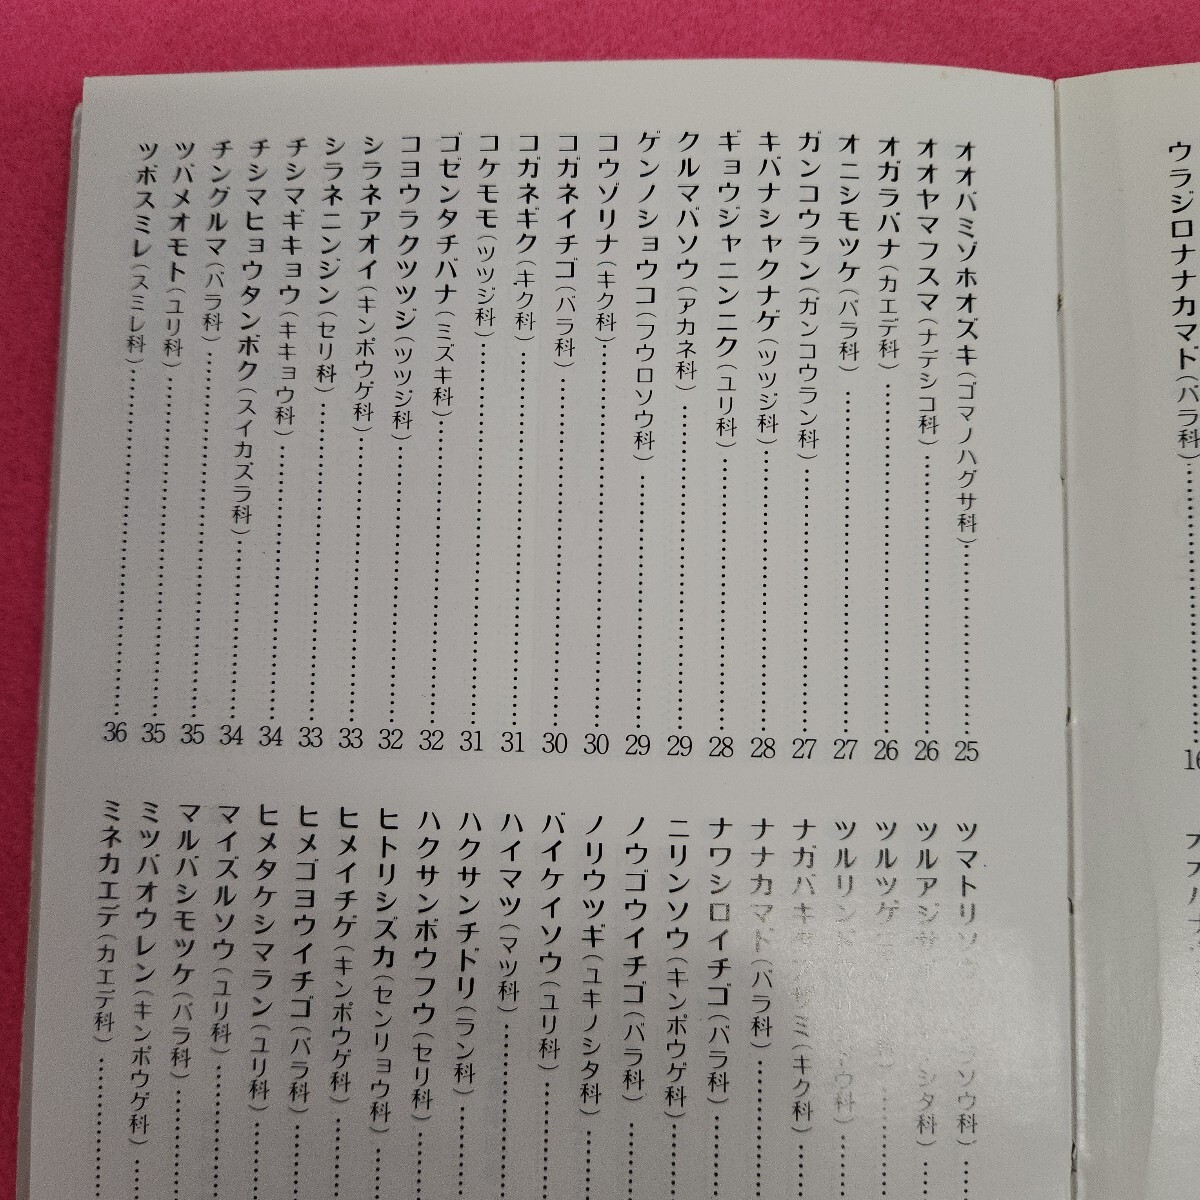 ウラジロナナカマド(バラ科)……16
オオバミゾホオズキ(ゴマノハグサ科)……25
オオヤマフスマ(ナデシコ科)……26
オガラバナ(カエデ科)……26
オニシモツケ(バラ科)……27
ガンコウラン(ガンコウラン科)……27
キバナシャクナゲ(ツツジ科)……28
ギョウジャニンニク(ユリ科)……28
クルマバソウ(アカネ科)……29
ゲンノショウコ(フウロソウ科)……29
コウゾリナ(キク科)……30
コガネイチゴ(バラ科)……30
コガネギク(キク科)……31
コケモモ(ツツジ科)……31
ゴゼンタチバナ(ミズキ科)……32
コヨウラクツツジ(ツツジ科)……32
シラネアオイ(キンポウゲ科)……33
シラネニンジン(セリ科)……33
チシマギキョウ(キキョウ科)……34
チシマヒョウタンボク(スイカズラ科)……34
チングルマ(バラ科)……35
ツバメオモト(ユリ科)……35
ツボスミレ(スミレ科)……36
ツマトリソ ソウ科)……
ツルアジサ シタ科)……
ツルツゲ 科)……
ツルリンド ウ科)……
ナガバキ ザミ(キク科)……
ナナカマド(バラ科)……
ナワシロイチゴ(バラ科)……
ニリンソウ(キンポウゲ科)……
ノウゴウイチゴ(バラ科)……
ノリウツギ(ユキノシタ科)……
バイケイソウ(ユリ科)……
ハイマツ(マツ科)……
ハクサンチドリ(ラン科)……
ハクサンボウフウ(セリ科)……
ヒトリシズカ(センリョウ科)……
ヒメイチゲ(キンポウゲ科)……
ヒメゴヨウイチゴ(バラ科)……
ヒメタケシマラン(ユリ科)……
マイズルソウ(ユリ科)……
マルバシモツケ(バラ科)……
ミツバオウレン(キンポウゲ科)……
ミネカエデ(カエデ科)……